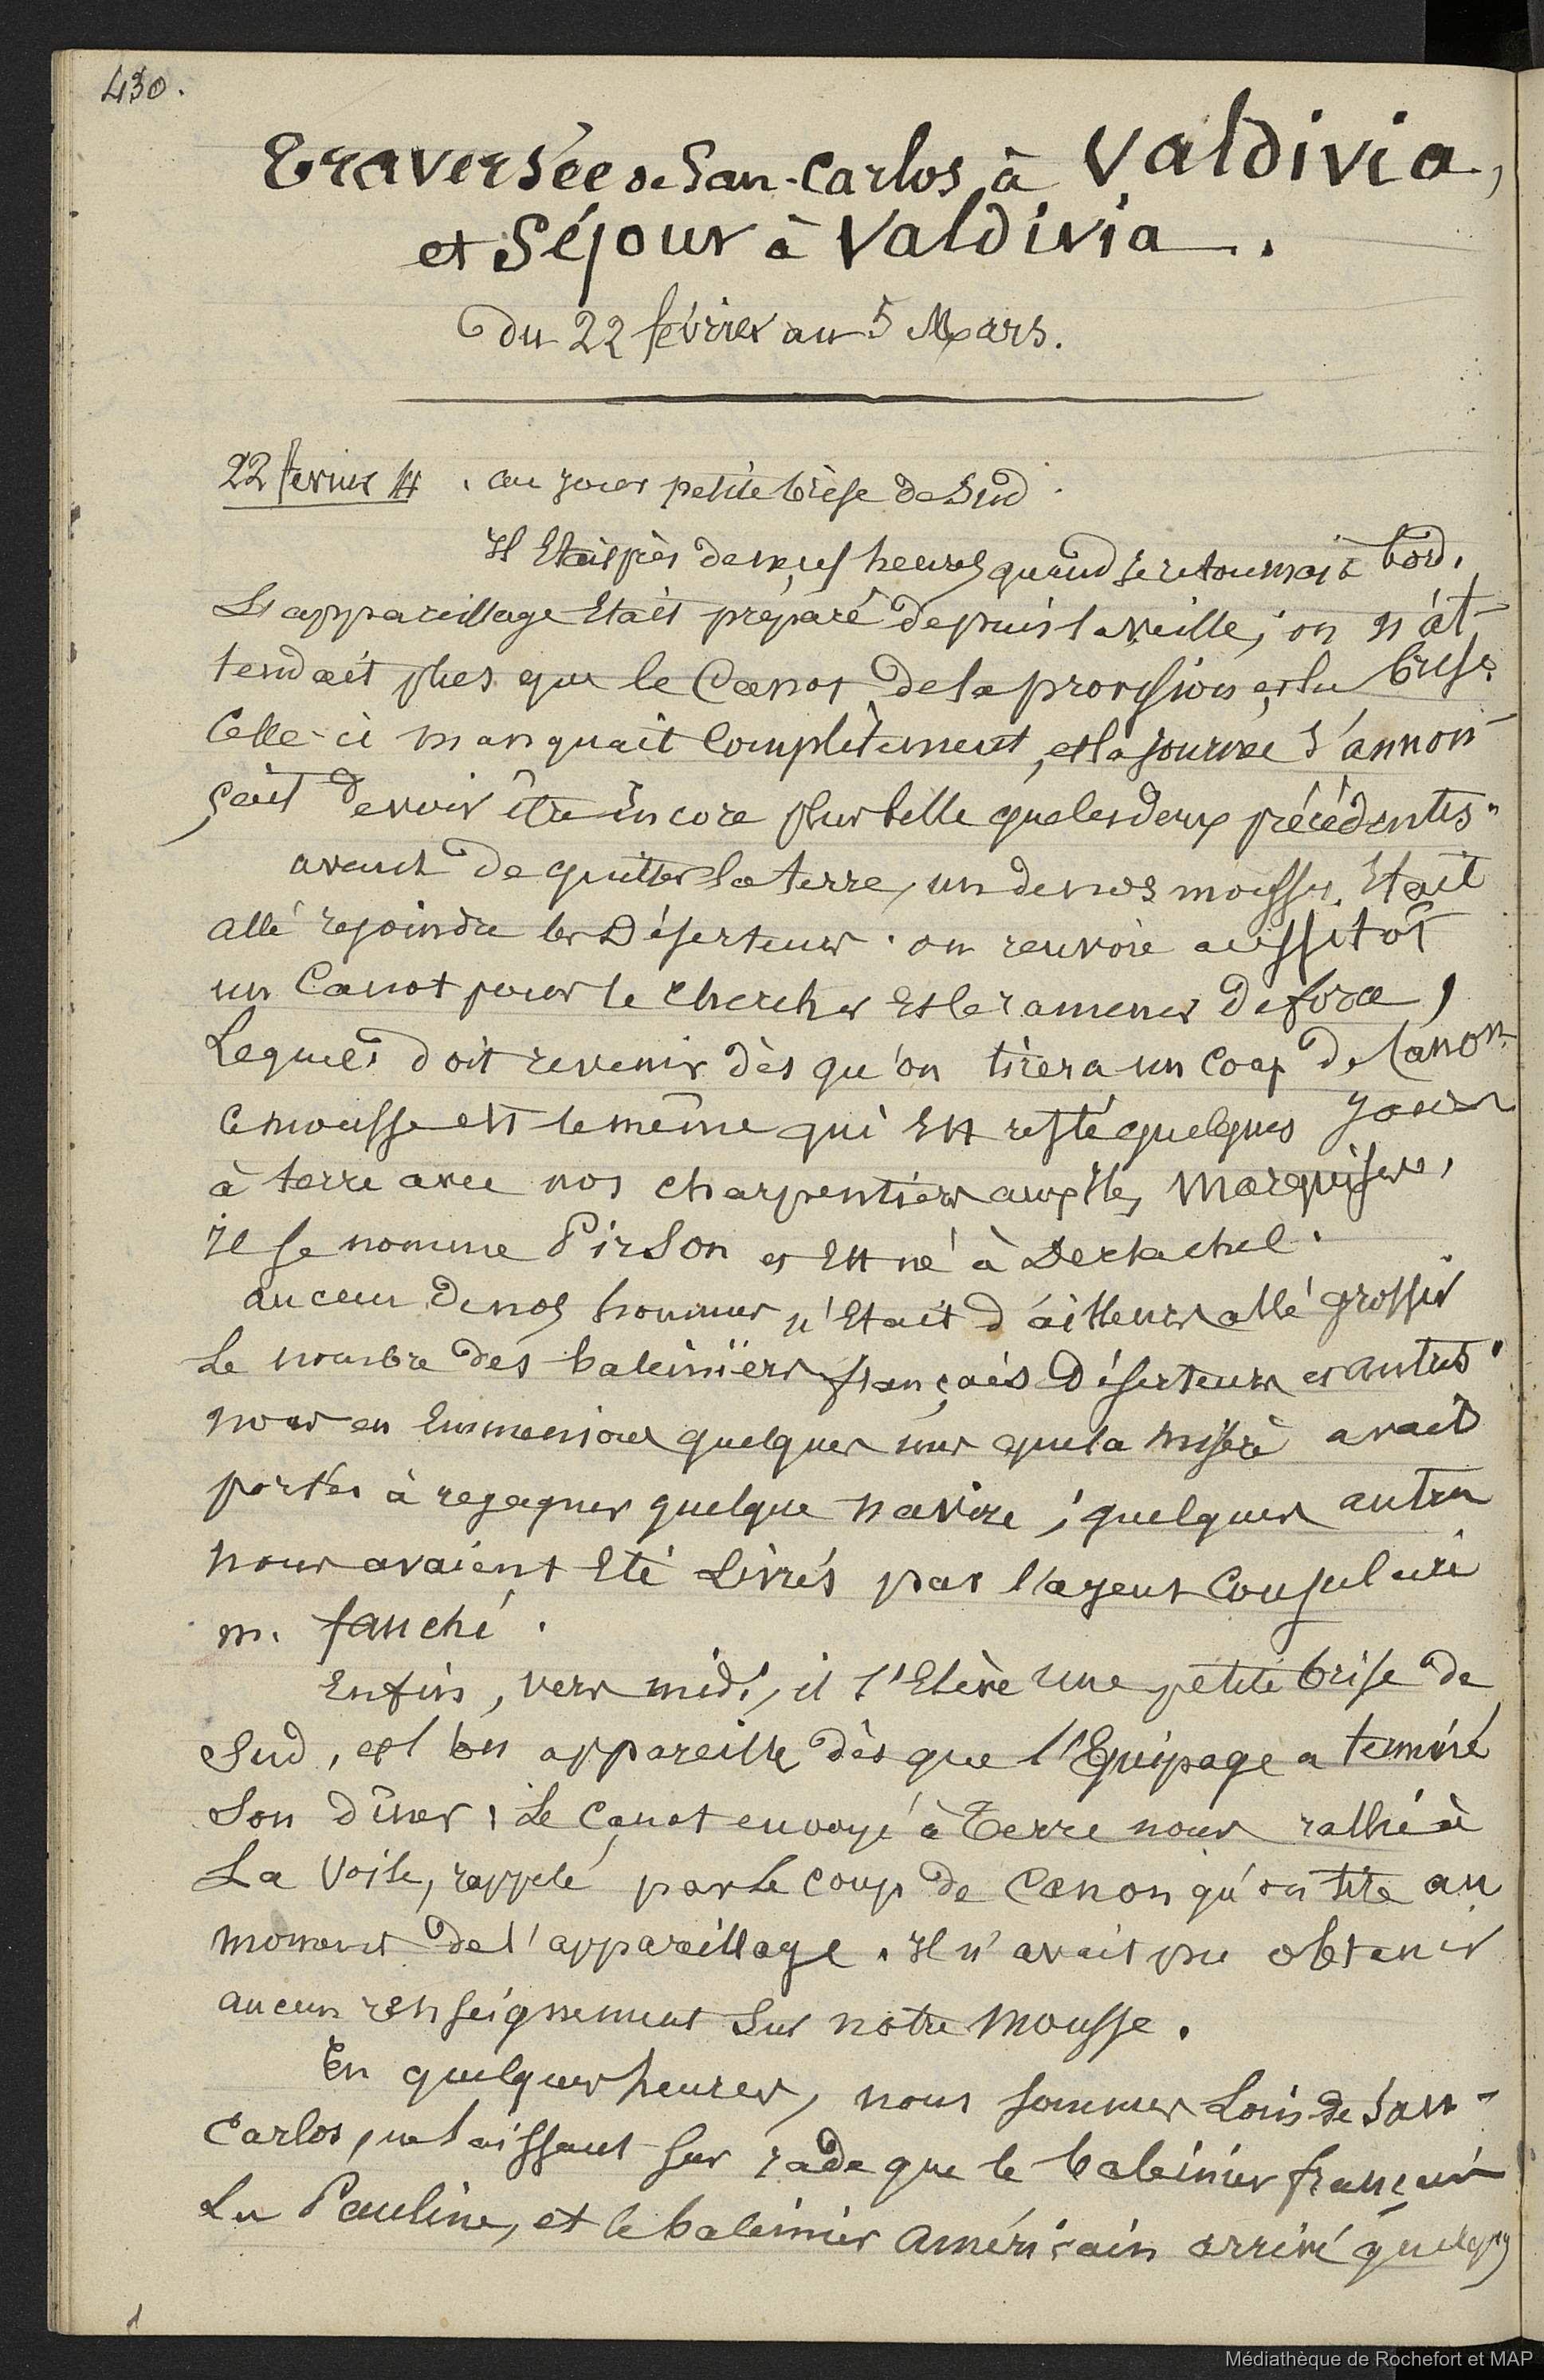 430.
Traversée de San-Carlos à Valdivia,
et Séjour à Valdivia.
du 22 février au 5 Mars.
22 fevrier . au jour petite brise de Sud.
Il Etait près de neuf heures quand je retournai à bord.
L'appareillage Etait préparé depuis la veille; on n'at-
tendait plus que le Canot de la provision et la brise.
Celle-ci manquait complètement, et la journée s'annon-
çait devoir être encore plus belle que les deux précédentes.
avant de quitter la terre, un de nos mousses Etait
allé rejoindre les Déserteurs. on renvoie aussitôt
un Canot pour le chercher et le ramener de force,
Lequel doit revenir dès qu'on tirera un coup de Canon
Ce mousse est le même qui Est resté quelques jours
à terre avec nos charpentiers aux îles Marquises,
il se nomme Pirson et Est né à
aucun de nos hommes n'Etait d'ailleurs allé grossir
le nombre des baleiniers français Déserteurs et autres.
nous en Emmenions quelques uns que la misère avait
portés à regagner quelque navire; quelques autres
nous avaient Eté Livrés par l'agent Consulaire
m. fauché.
Enfin, vers midi, il s'Elève une petite brise de
Sud, et l'on appareille dès que l'Equipage a terminé
Son dîner; Le Canot envoyé à Terre nous rallie à
La voile, rappelé par le coup de Canon qu'on tire au
moment de l'appareillage. Il n'avait pu obtenir
aucun renseignement Sur notre Mousse.
En quelques heures, nous sommes Loin de San-
Carlos, ne laissant sur rade que le baleinier français
La Pauline, et le baleinier Américain arrivé quelques
Médiathèque de Rochefort et MAP